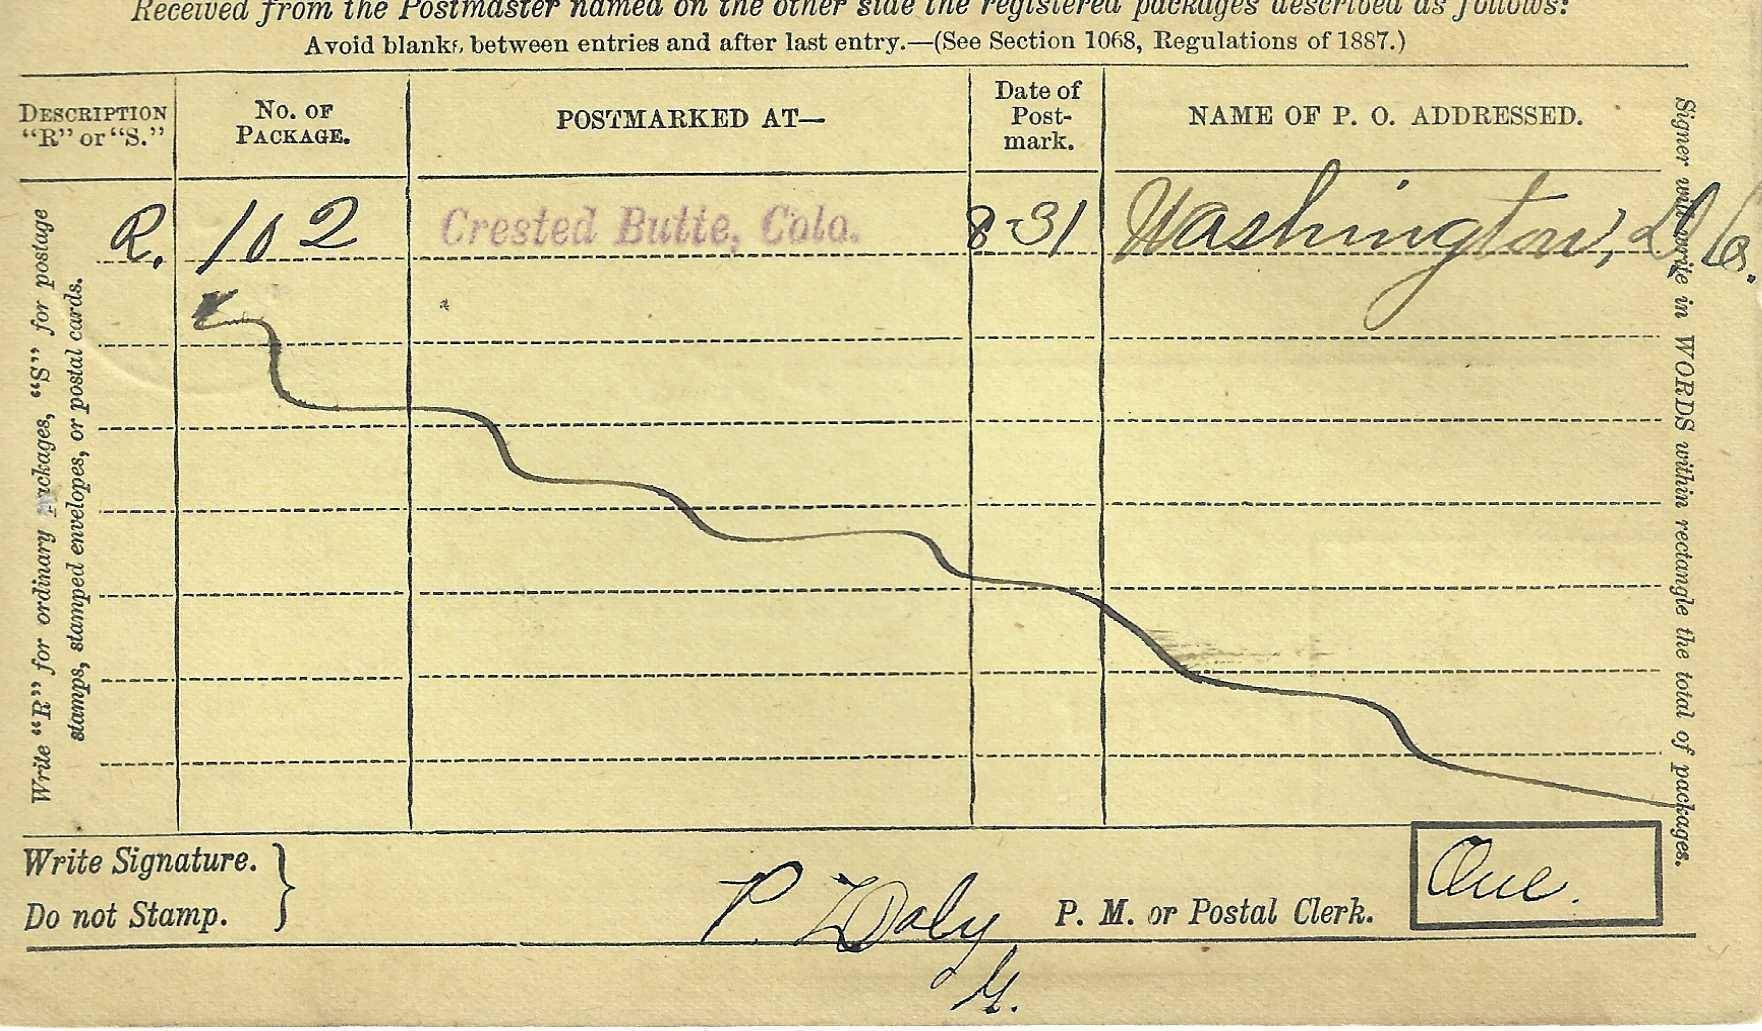 Received from the Postmaster named on the other side the registered packages described as follows:
Avoid blanks, between entries and after last entry.—(See Section 1068, Regulations of 1887.)
DESCRIPTION "R" or "S."
No. OF PACKAGE.
POSTMARKED AT—
Date of Post-mark.
NAME OF P. O. ADDRESSED.
R. 102 Crested Butte, Colo. 8-31 Washington, D.C.
Write "R" for ordinary packages, "S" for postage
stamps, stamped envelopes, or postal cards.
Signer will write in WORDS within rectangle the total of packages.
Write Signature.
Do not Stamp.
P. Daly
P. M. or Postal Clerk.
One.